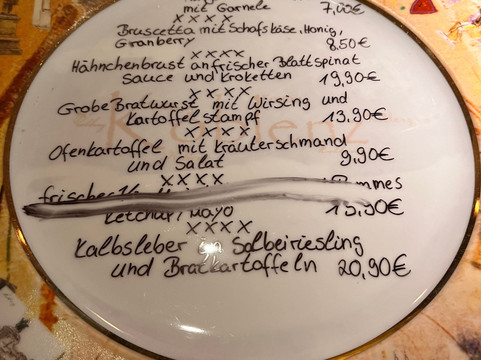 mit Garnele 7,00€
xxxx
Bruscetta mit Schafskäse, Honig,
Granberry 8,50€
xxxx
Hähnchenbrust an frischer Blattspinat
Sauce und Kroketten 19,90€
xxxx
Grobe Bratwurst mit Wirsing und
Kartoffelstampf 13,90€
xxxx
Ofenkartoffel mit Kräuterschmand
und Salat 9,90€
xxxx
frischer
Ketchup/Mayo
xxxx
Kalbsleber in Salbeiriesling
und Bratkartoffeln 20,90€